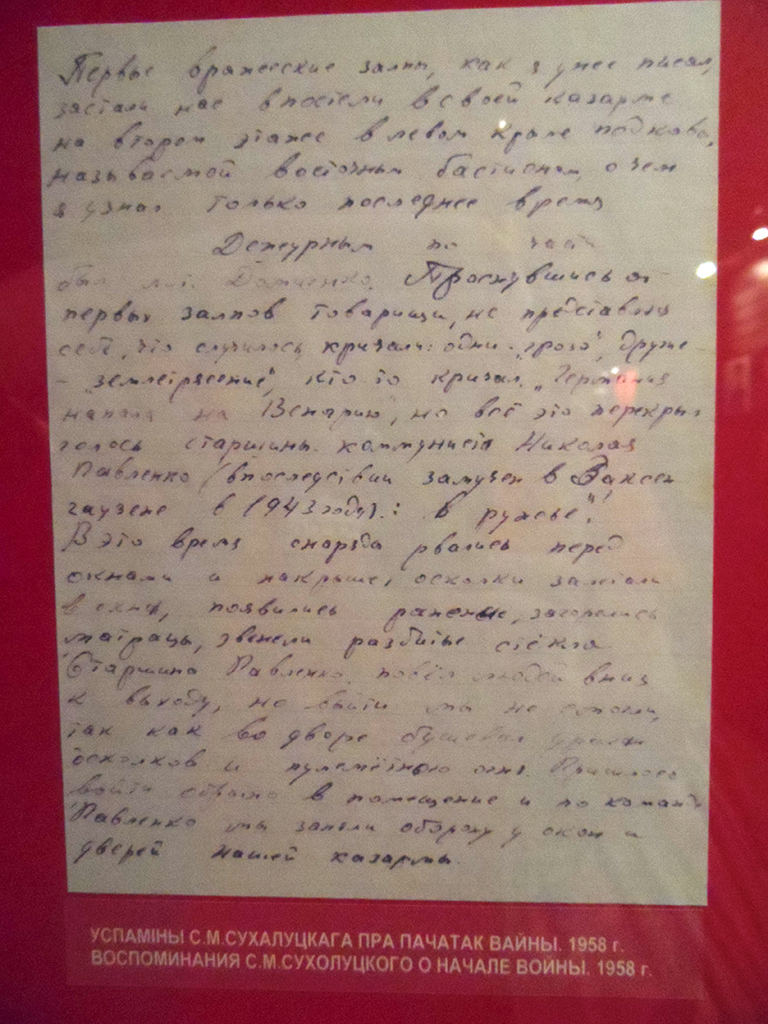 Первые вражеские залпы, как я уже писал,
застали нас в постели в своей казарме
на втором этаже в левом крыле подковы,
называемой восточным бастионом, о чем
я узнал только последнее время
Дежурным по части
был Проснувшись от
первых залпов товарищи, не представляя
себе, что случилось, кричали: одни "гроза", другие
- "землетрясение", кто то кричал "Германия
напала на Венгрию", но всё это перекрыл
голос старшины коммуниста Николая
Павленко (впоследствии замучен в Заксен
гаузене в 1943 году).: "В ружье"!
В это время снаряды рвались перед
окнами и на крыше, осколки залетали
в окна, появились раненые, загорелись
матрацы, звенели разбитые стёкла
Старшина Павленко повёл людей вниз
к выходу, но выйти мы не смогли,
так как во дворе бушевал ураган
осколков и пулемётного огня. Пришлось
войти обратно в помещение и по команде
Павленко мы заняли оборону у окон и
дверей нашей казармы.
УСПАМІНЫ С.М.СУХАЛУЦКАГА ПРА ПАЧАТАК ВАЙНЫ. 1958 г.
ВОСПОМИНАНИЯ С.М.СУХОЛУЦКОГО О НАЧАЛЕ ВОЙНЫ. 1958 г.